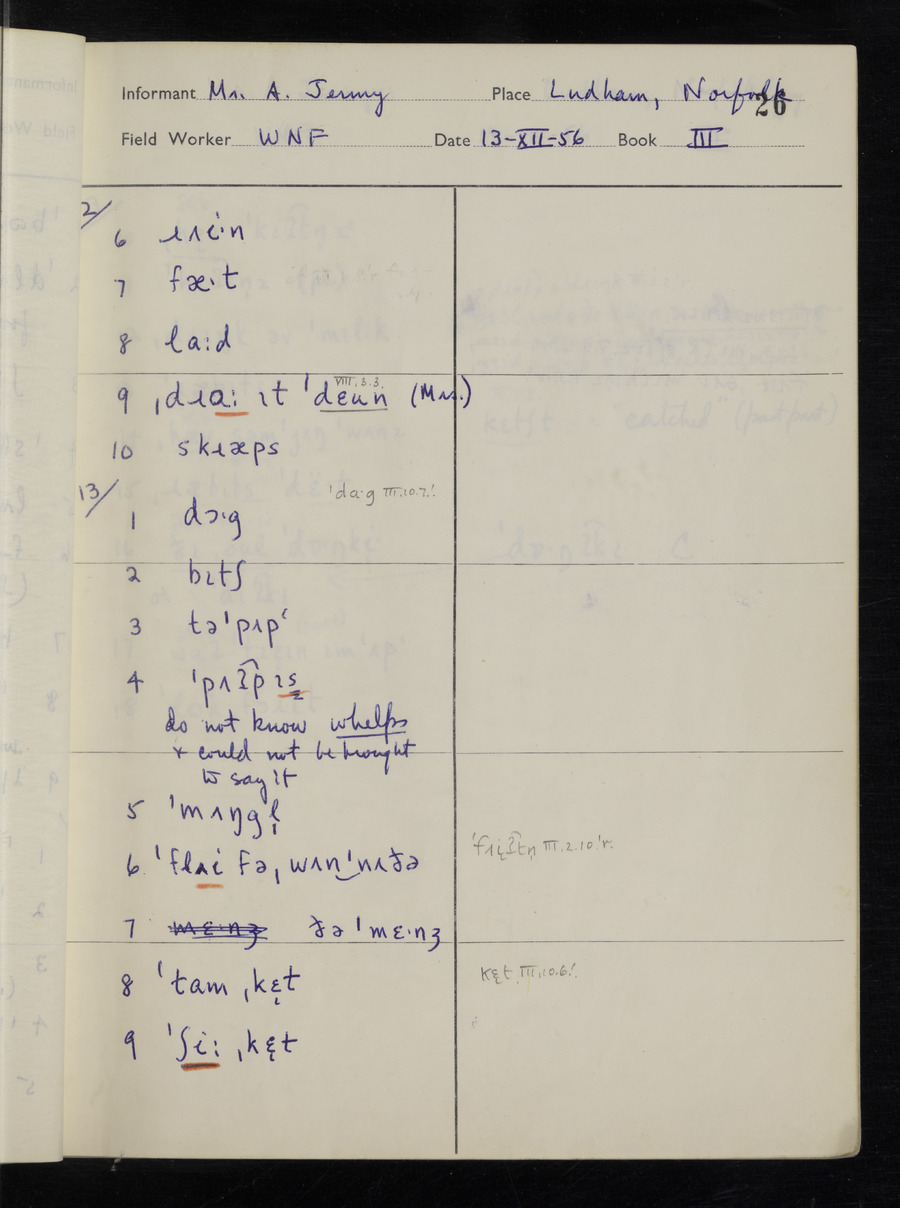 Informant Mr. A. Jermy Place Ludham, Norfolk
26
Field Worker WNF Date 13-XII-56 Book III
2/
6 ɹʌi·n
7 fæ·t
8 laːd
VIII.3.3.
9 ˌdɹaː ɩt ˈdɛun (Mrs.)
10 skɹæps
13/ ˈda·g III.10.7.
1 dɔ·g
2 bɩtʃ
3 təˈpʌpʿ
4 ˈpʌʔ͡pɩs
do not know whelps
+ could not be brought
to say it
5 ˈmʌŋgl̩
6 ˈflʌi fə ˌwʌn‿ˈnʌðə
III.2.10
7 mɛ·nʒ ðə ˈmɛ·nʒ
8 ˈtam ˌkɛ̨t kɛ̨t III.10.6.
9 ˈʃiː ˌkɛ̨t